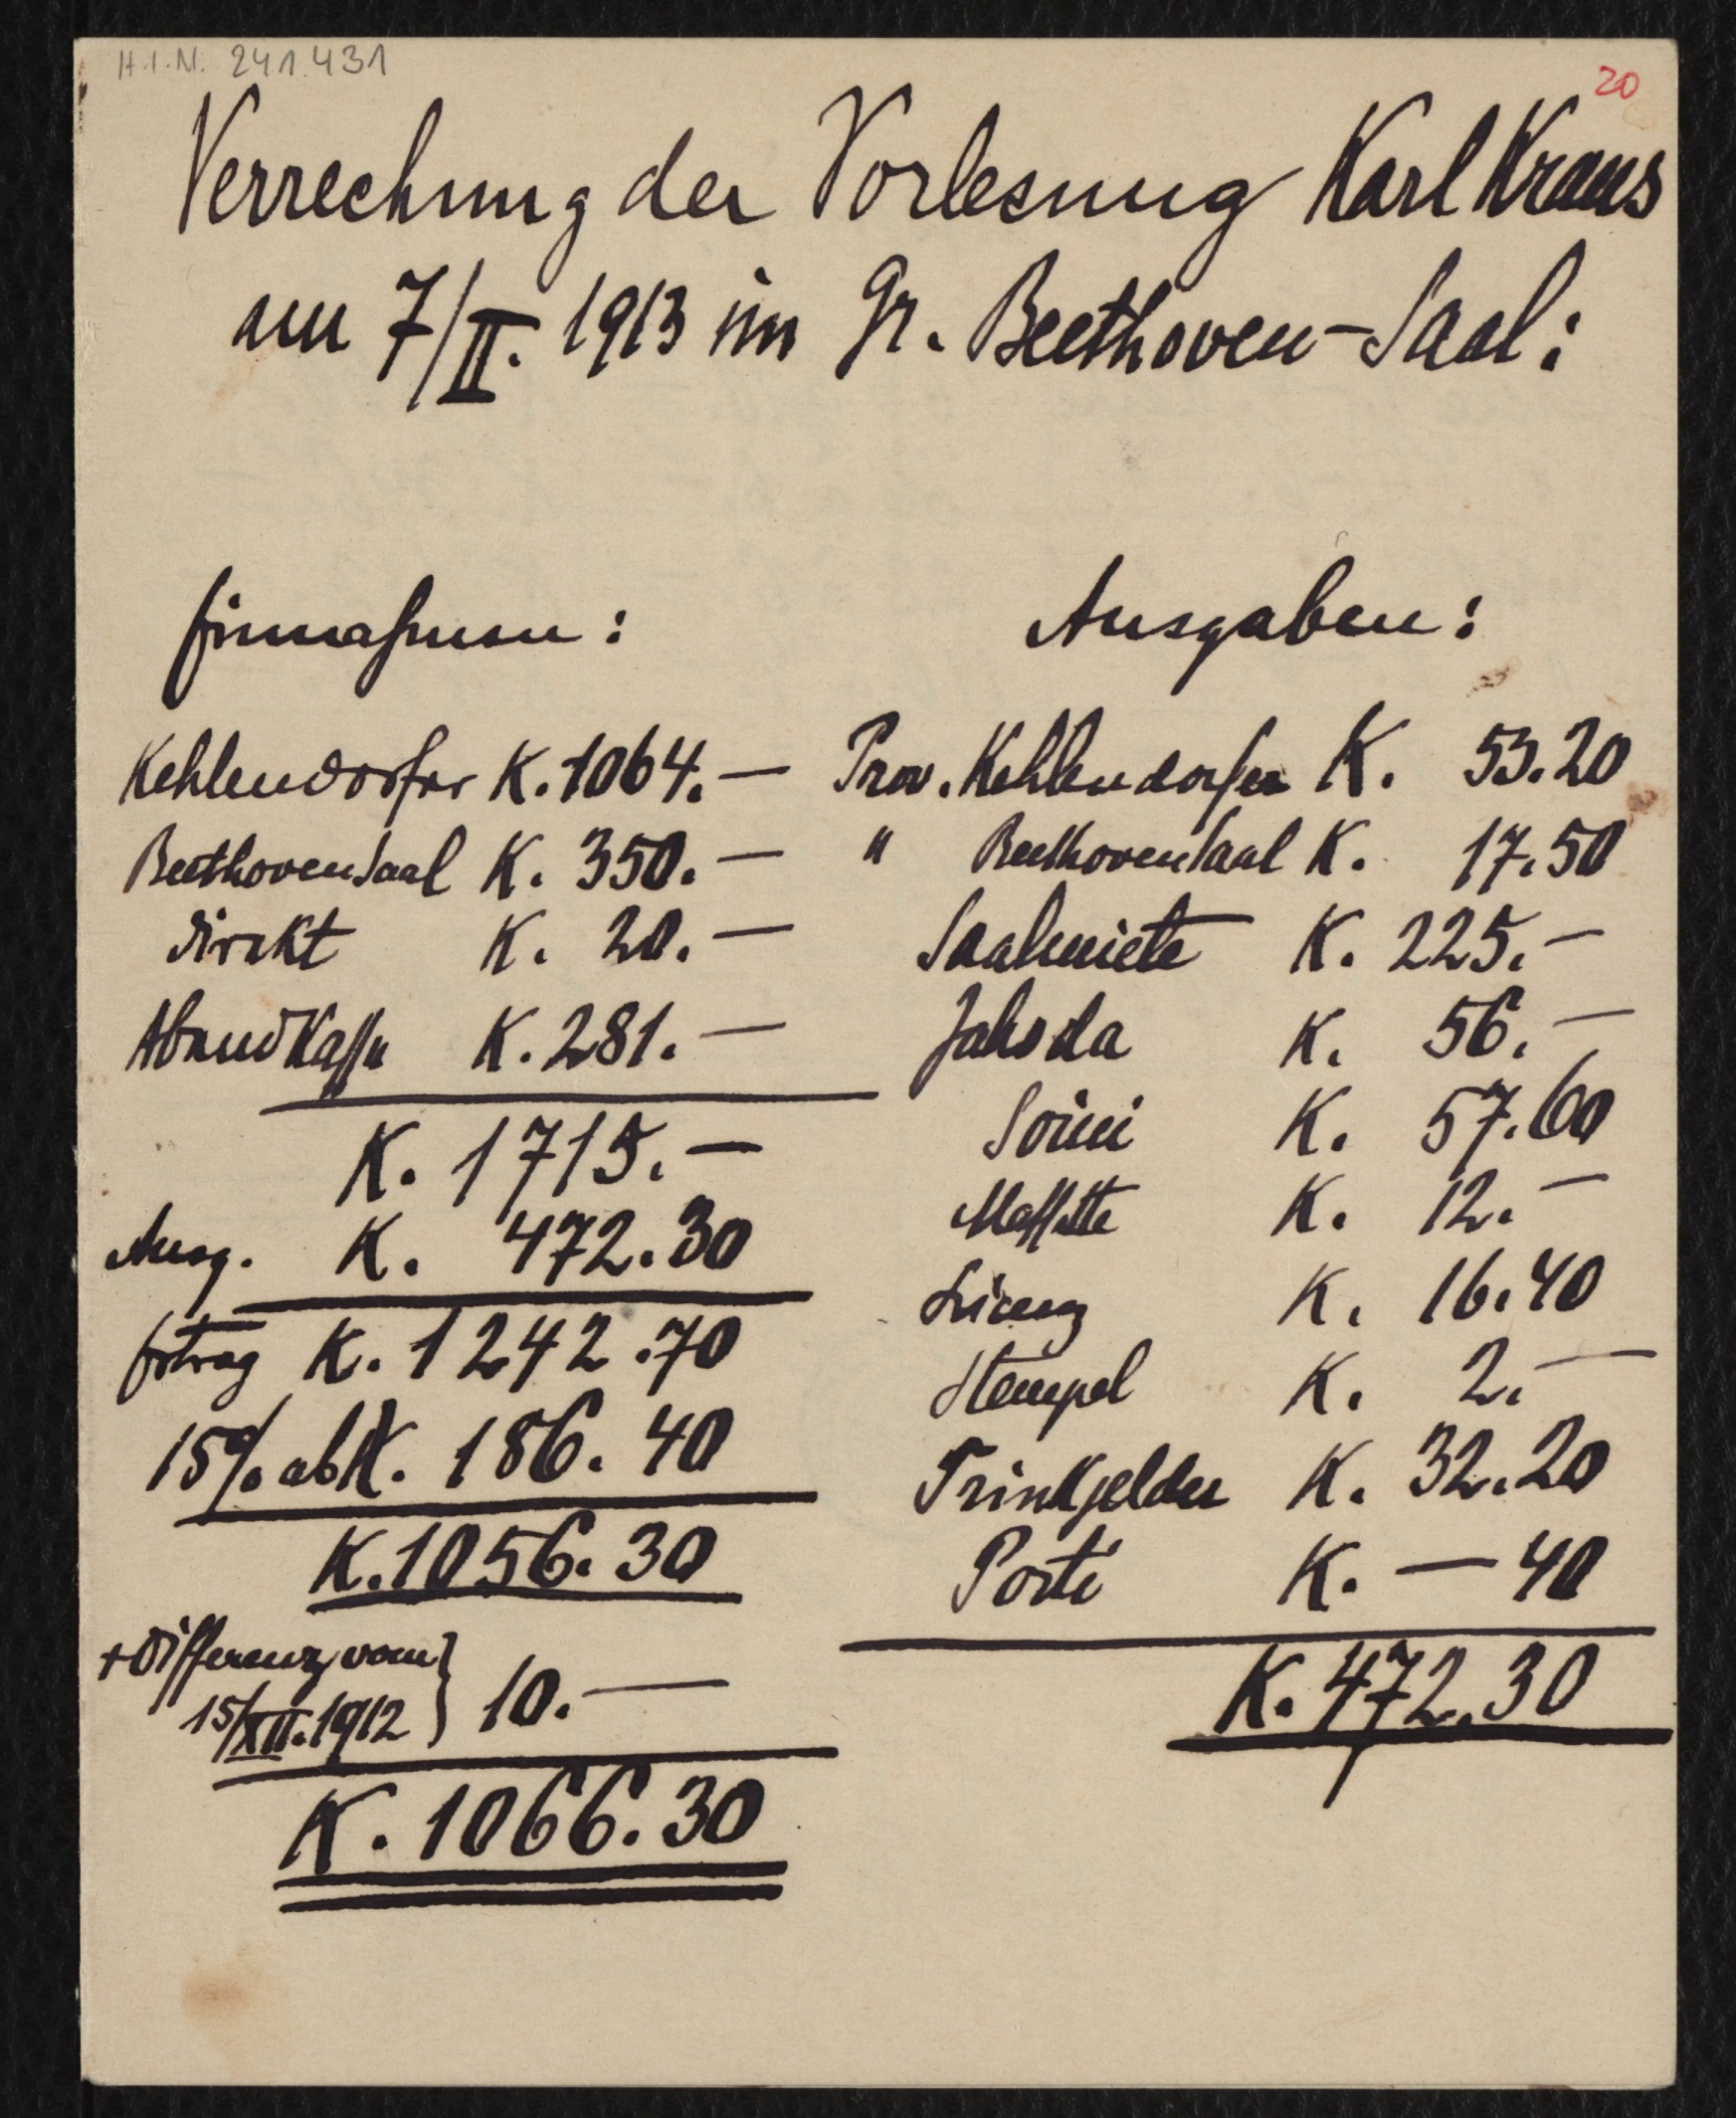 H.I.N. 241.431
20
Verrechnung der Vorlesung Karl Kraus
am 7/II. 1913 im Gr. Beethoven-Saal:
Einnahmen:
Kehlendorfer K. 1064.—
Beethovensaal K. 350.—
direkt K. 20.—
Abendkassa K. 281.—
K. 1715.—
Ausg. K. 472.30
Ertrag K. 1242.70
15% ab K. 186.40
K. 1056.30
+ Differenz vom
15/XII. 1912 } 10.—
K. 1066.30
Ausgaben:
Prov. Kehlendorfer K. 53.20
" Beethovensaal K. 17.50
Saalmiete K. 225.—
Jahoda K. 56.—
K. 57.60
K. 12.—
K. 16.40
Stempel K. 2.—
Trinkgelder K. 32.20
Porti K. — 40
K. 472.30